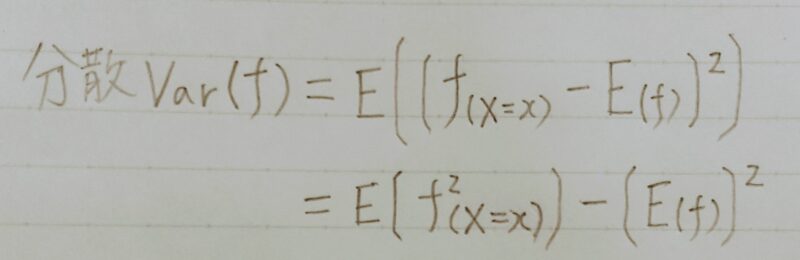 分散 Var(f) = E((f(X=x) - E(f))²)
= E(f²(X=x)) - (E(f))²